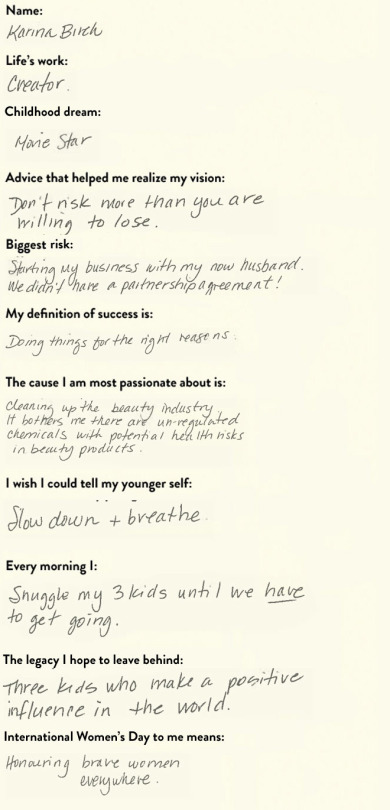 Name:
Karina Birch
Life's work:
Creator.
Childhood dream:
Movie Star
Advice that helped me realize my vision:
Don't risk more than you are
willing to lose.
Biggest risk:
Starting my business with my now husband.
We didn't have a partnership agreement!
My definition of success is:
Doing things for the right reasons.
The cause I am most passionate about is:
Cleaning up the beauty industry.
It bothers me there are un-regulated
chemicals with potential health risks
in beauty products.
I wish I could tell my younger self:
Slow down + breathe.
Every morning I:
Snuggle my 3 kids until we have
to get going.
The legacy I hope to leave behind:
Three kids who make a positive
influence in the world.
International Women's Day to me means:
Honouring brave women
everywhere.